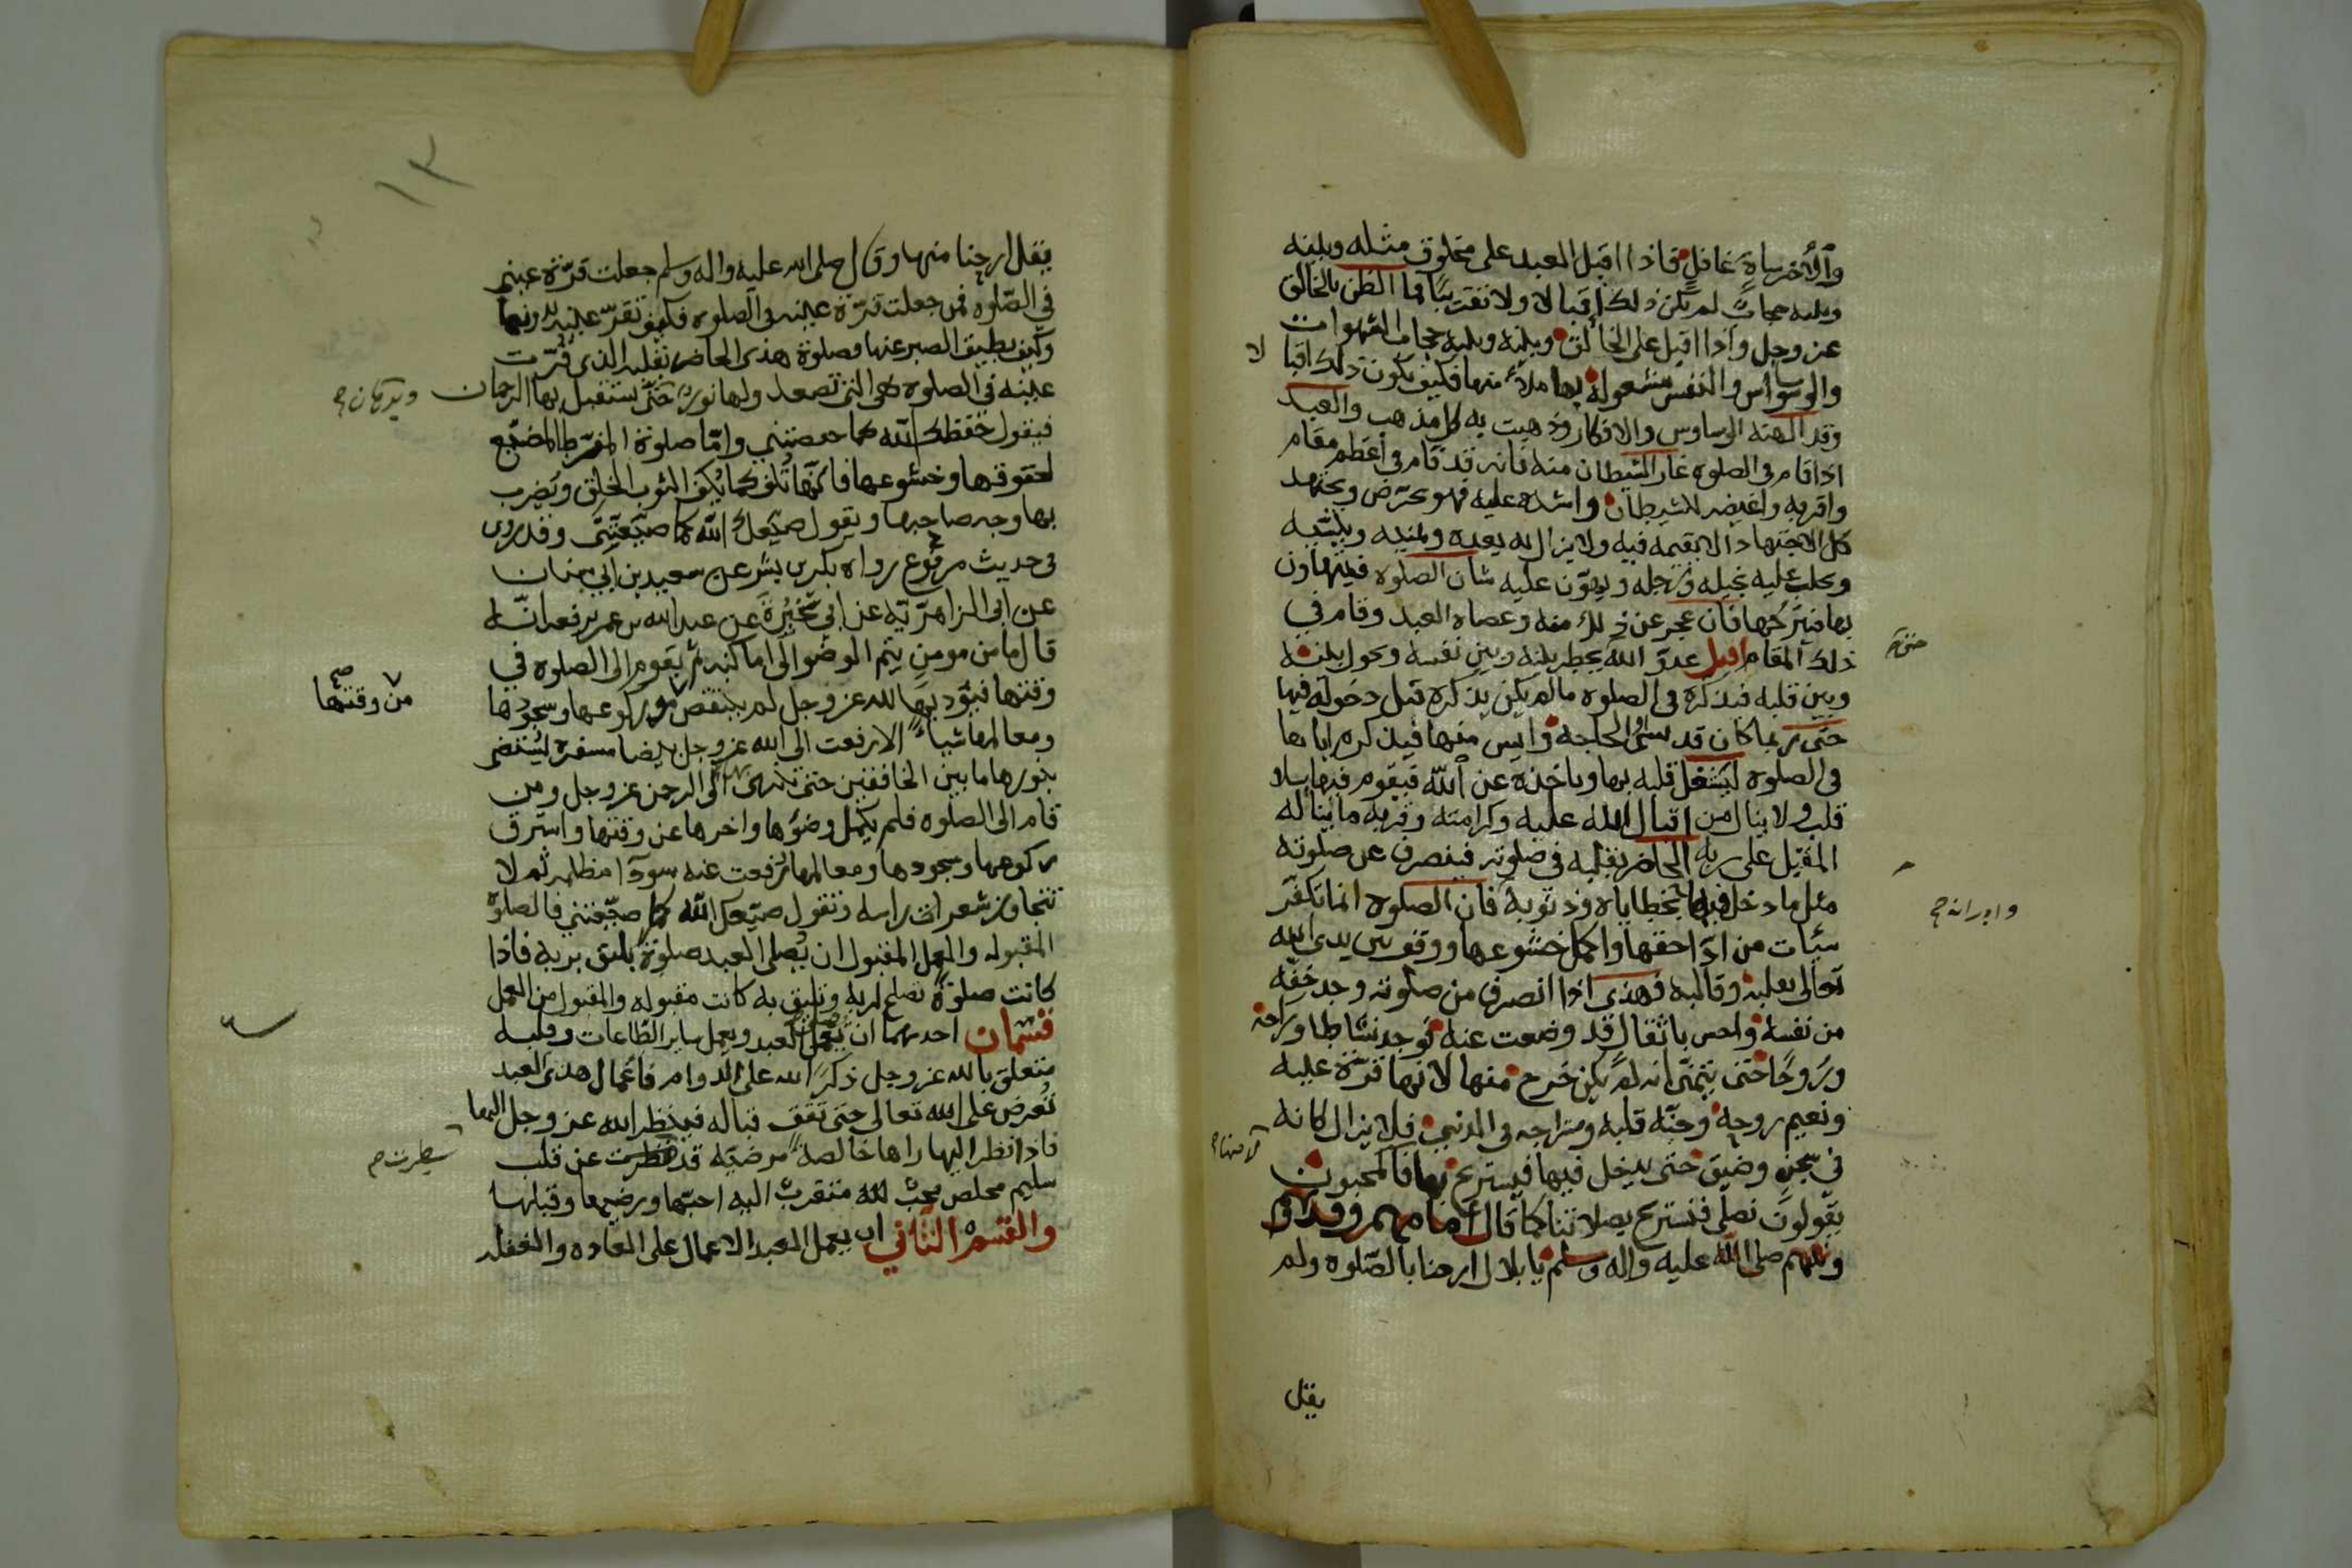 والآخر ساهٍ غافلٍ فاذا اقبل العبد على مخلوق مثله وبينه
وبينه حجاب لم يكن ذلك اقبالا ولا تقريبًا فما الظن بالخالق
عز وجل واذا اقبل على الخالق وبينه وبينه حجاب الشهوات
والوسواس والنفس مشغولة بها ملأ منها فكيف يكون ذلك اقبا لا
وقد الهته الوساوس والافكار وذهبت به كل مذهب والعبد
اذا قام في الصلوه غار الشيطان منه فانه قد قام في اعظم مقام
واقربه واغيضه للشيطان واشده عليه فهو يحرّض ويجتهد
كل الاجتهاد الا يقيمه فيه ولا يزال به يعده ويمنيه وينسّيه
ويجلب عليه بخيله ورجله ويهوّن عليه شان الصلوه فيتهاون
بها فيتركها فان عجز عن ذلك منه وعصاه العبد وقام في
ذلك المقام اقبل عدوّ الله يخطر بينه وبين نفسه ويحول بينه
وبين قلبه فيذكره في الصلوه مالم يكن يذكره قبل دخوله فيها
حتى ربما كان قد نسي الحاجة وايس منها فيذكره اياها
في الصلوه ليشغل قلبه بها وياخذه عن الله فيقوم فيها بلا
قلب ولا ينال من اقبال الله عليه وكرامته وقربه ما يناله
المقبل على ربه الحاضر بقلبه في صلوته فينصرف عن صلوته
مثل ما دخل فيها بخطاياه وذنوبه فان الصلوه انما تكفّر
سيئات من ادّا حقها واكمل خشوعها ووقف بين يدي الله
تعالى بقلبه وقالبه فهذى اذا انصرف من صلوته وجد خفّه
من نفسه واحس باثقال قد وضعت عنه فوجد نشاطا وراحة
ورَوحًا حتى يتمنّى انه لم يكن خرج منها لانها قرّة عينه
ونعيم روحه وجنّه قلبه ومستراحه في الدنيى فلا يزال كانه
في سجن وضيق حتى يدخل فيها فيستريح بها فالمحبون
يقولون نصلي فنستريح بصلاتنا كما قال امامهم وقدوتهم
ونبيهم صلى الله عليه واله وسلم يا بلال ارحنا بالصّلوه ولم
يقل
١٣
يقل ارحنا منها وقال صلى الله عليه واله وسلم جعلت قرّة عيني
في الصّلوه فمن جعلت قرّة عينه في الصلوه فكيف تقرّ عينه بدونها
وكيف يطيق الصبر عنها فصلوة هذى الحاضر بقلبه الذي قرّت
عينه في الصلوه هي التي تصعد ولها نور حتى يستقبل بها الرحمان
فيقول حفظك الله كما حفضتني وامّا صلوة المفرّط المضيّع
لحقوقها وخشوعها فانها تُلف كما يُلف الثوب الخلق ويضرب
بها وجه صاحبها ويقول ضيّعك الله كما ضيّعتني وقد روى
في حديث مرفوع رواه بكر بن بشر عن سعيد بن ابي سنان
عن ابي الزاهريّه عن ابي شجرة عن عبد الله بن عمر يرفعه انّه
قال ما من مومن يتم الوضوا الى اماكنه ثم يقوم الى الصلوه في
وقتها فيودّيها لله عز وجل لم ينتقص من ركوعها وسجودها
من وقتها صح
ومعالمها شيأً الا رفعت الى الله عز وجل بيضا مسفره يستضي
بنورها ما بين الخافقين حتى تنتهي الى الرحمن عز وجل ومن
قام الى الصلوه فلم يكمل وضؤها واخرها عن وقتها واسترق
ركوعها وسجودها ومعالمها رفعت عنه سودآ مظلمه ثم لا
تتجاوز شعرات راسه وتقول ضيّعك الله كما ضيّعتني فالصلوة
المقبوله والعمل المقبول ان يُصلي العبد صلوةً يليق بربه فاذا
كانت صلوةً تصلح لربه وتليق به كانت مقبوله والمقبول من العمل
قسمان احدهما ان يصلي العبد ويعمل ساير الطّاعات وقلبه
متعلق بالله عز وجل ذكرً لله على الدوام فاعمال هذى العبد
تُعرض على الله تعالى حتى تقف قباله فينظر الله عز وجل اليها
فاذا نظر اليها راها خالصةً مرضيّه قد صدرت عن قلب
سليم مخلص محبّ لله متقربٌ اليه احبّها ورضيها وقبلها
والقسم الثاني ان يعمل العبد الاعمال على العاده والغفله